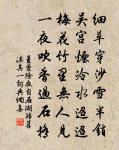 细草穿沙雪半销
吴宫烟冷水迢迢
梅花竹里无人见
一夜吹香过石桥
姜夔除夜自石湖归苕
溪其一诗典网集